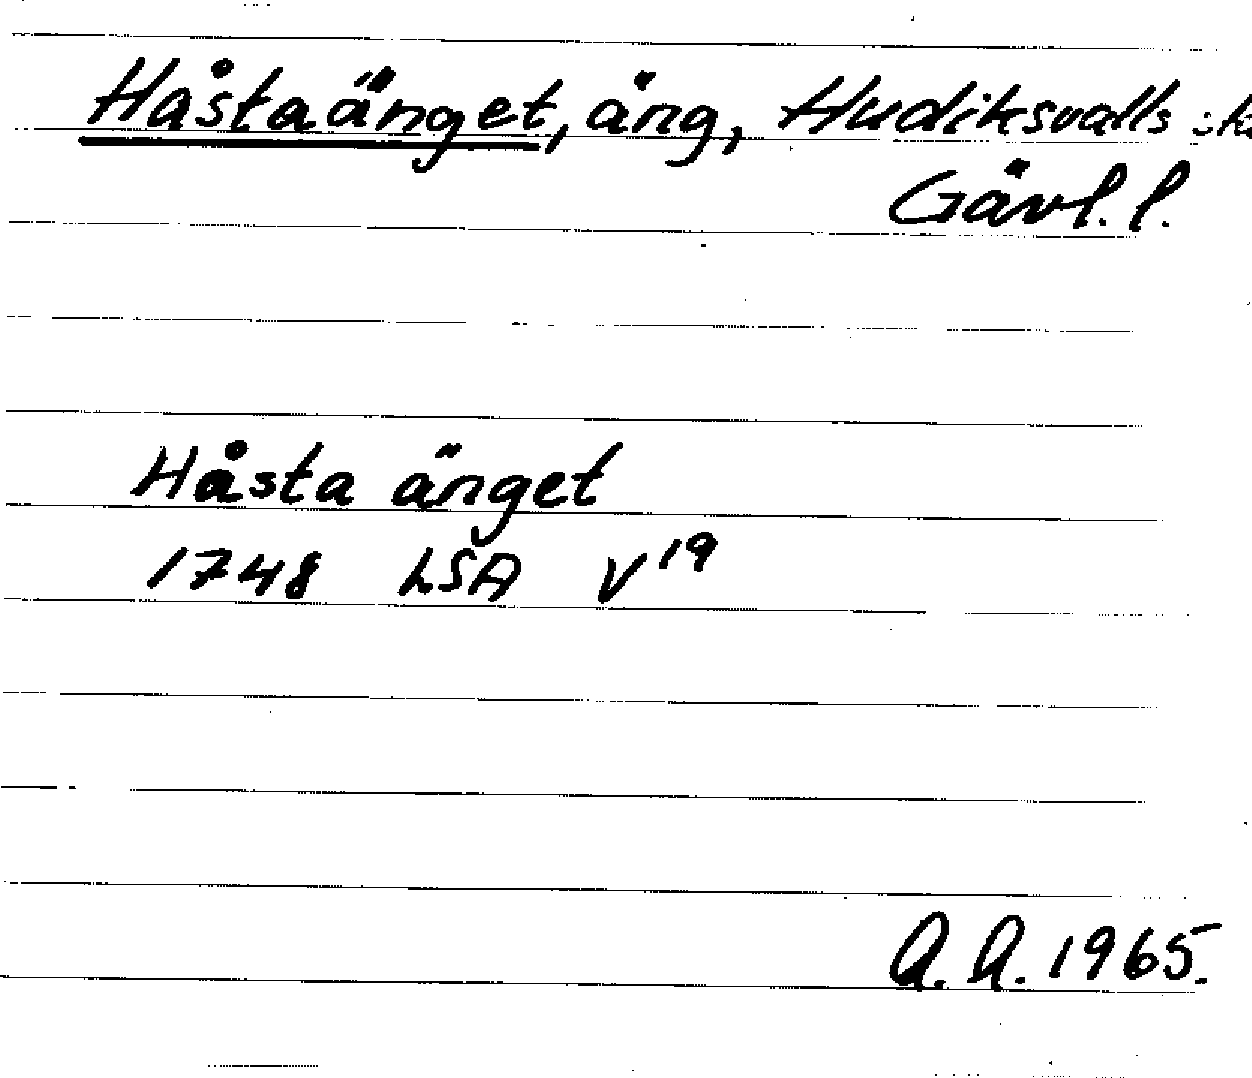 Håstaänget, äng, Hudiksvalls
Gävl. l.
Håsta änget
1748 LSA V19
A. A. 1965.